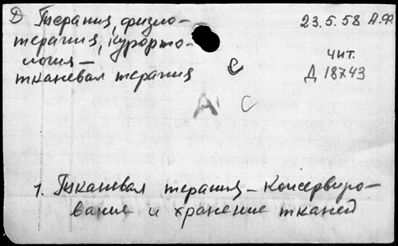 Д Терапия, физио-
терапия, курорто-
логия —
тканевая терапия
23.5.58 А.Ф.
чит.
Д 18743
е
А с
1. Тканевая терапия — Консервиро-
вание и хранение тканей